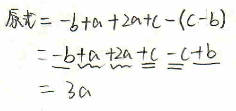 原式=-b+a+2a+c-(c-b)
=-b+a+2a+c-c+b
=3a